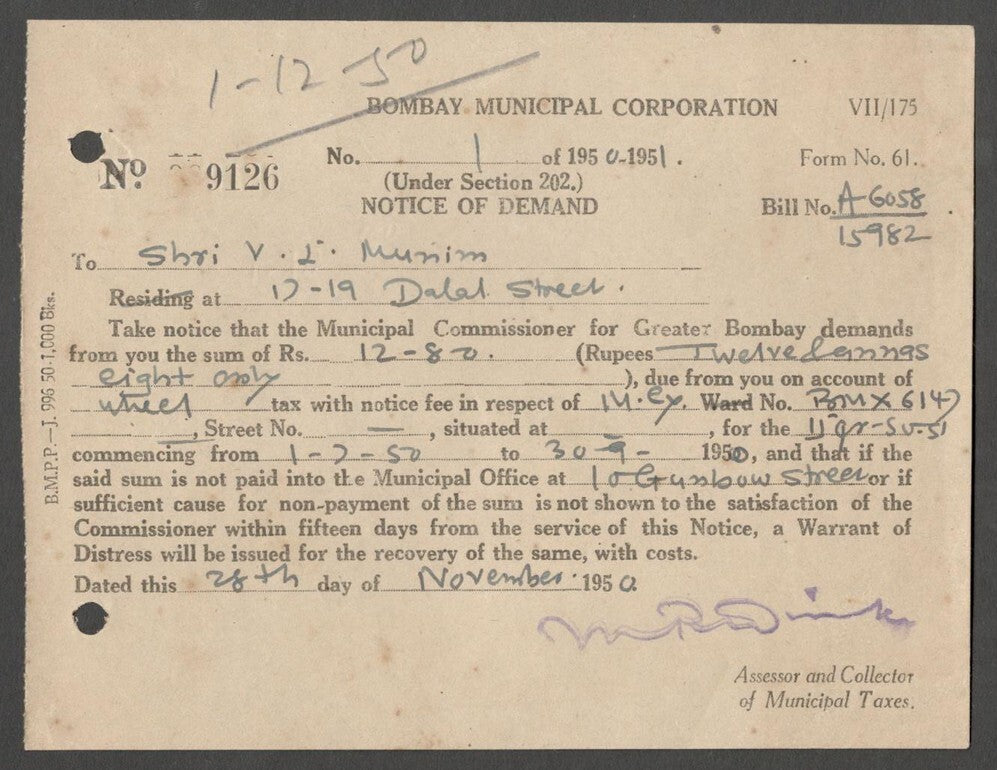 1-12-50
BOMBAY MUNICIPAL CORPORATION VII/175
No. 1 of 1950-1951. Form No. 61.
No 9126
(Under Section 202.)
NOTICE OF DEMAND Bill No. A-6058
15982
To Shri V. L. Munim
Residing at 17-19 Dalal Street.
Take notice that the Municipal Commissioner for Greater Bombay demands
from you the sum of Rs. 12-8-0. (Rupees Twelve & annas
eight only ), due from you on account of
wheel tax with notice fee in respect of M. Ex. Ward No. BMX 6147
, Street No. — , situated at — , for the II qr-50-51
commencing from 1-7-50 to 30-9- 1950, and that if the
said sum is not paid into the Municipal Office at 10 Gunbow Street or if
sufficient cause for non-payment of the sum is not shown to the satisfaction of the
Commissioner within fifteen days from the service of this Notice, a Warrant of
Distress will be issued for the recovery of the same, with costs.
Dated this 28th day of November 1950.
Assessor and Collector
of Municipal Taxes.
B.M.P.P.—J. 996 50-1,000 Bks.